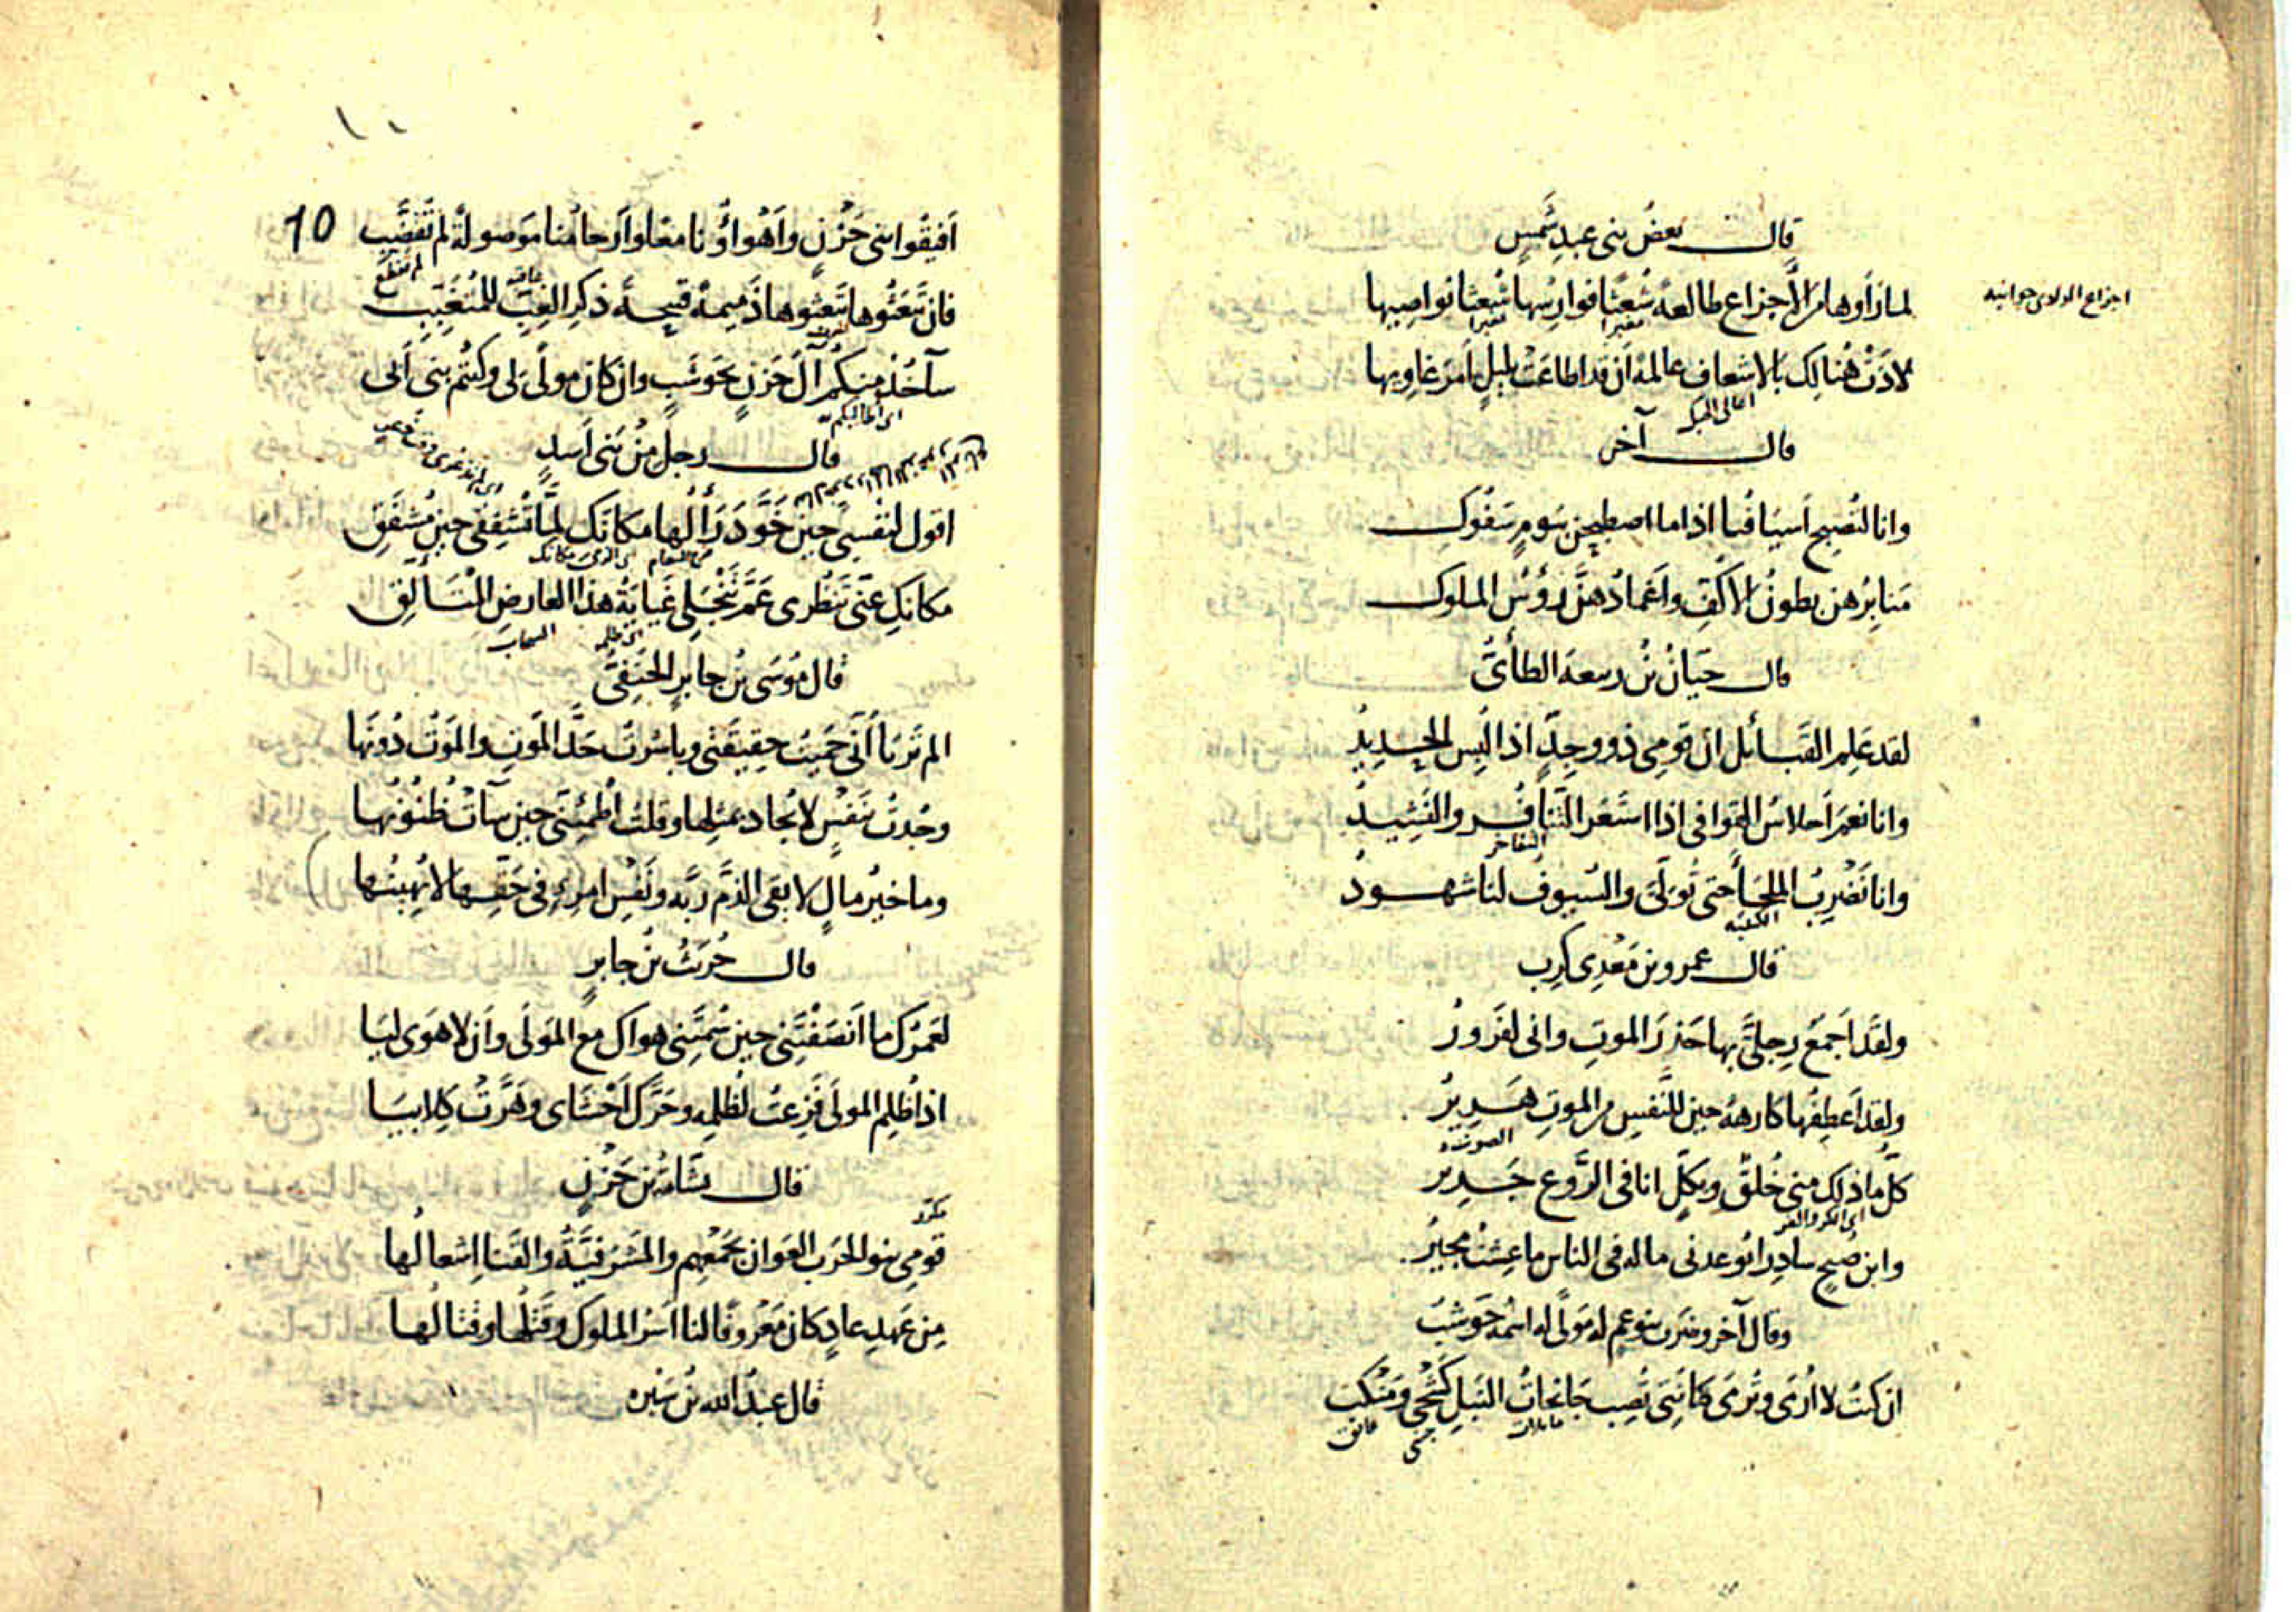 قال بعض بنى عبد شمس
لما رأوها من الأجزاع طالعة شعثا فوارسها شعثا نواصيها
اجزاع الوادى جوانبه
لاذت هنالك بالاشعاف عالمة أن قد اطاعت بليل أمر غاويها
اعالى الجبل
قال آخر
وانا لتصبح أسيافنا اذا ما اصطبحن بيوم سفوك
منابرهن بطون الاكف واغمادهن رؤس الملوك
قال حيان بن ربيعة الطائى
لقد علم القبائل ان قومى ذوو جد اذا لبس الحديد
وانا نعم أحلاس القوافى اذا استعر التنافر والنشيد
التفاخر
وانا نضرب الملحاء حتى تولى والسيوف لنا شهود
الكتيبه
قال عمرو بن معدى كرب
ولقد اجمع رجلى بها حذر الموت وانى لفرور
ولقد اعطفها كارهة حين للنفس من الموت هرير
الصوت
كل ما ذلك منى خلق وبكل انا فى الروع جدير
اى الكر والفر
وابن صبح سادرا يوعدنى ماله فى الناس ما عشت مجير
وقال آخر وضرب بنو عم له مولى له اسمه حوشب
ان كنت لا أرمى وترمى كنانتى تصب جانحات النبل كشحى ومنكبى
مايلات جنبى
10
افيقوا بنى حزن وأهواؤنا معا وأرحامنا موصولة لم تقضب
لم تقطع
فان تبعثوها تبعثوها ذميمة قبيحة ذكر الغب للمتغبب
عاقبة
سآخذ منكم آل حزن بحوشب وان كان مولى لى وكنتم بنى أبى
اى اطالبكم به
قال رجل من بنى أسد
اقول لنفسى حين خود رألها مكانك لما تشفقى حين مشفق
مكانك حتى تنظرى عم تنجلى غياية هذا العارض المتألق
اى ظلمه السحاب
قال موسى بن جابر الحنفى
الم تريا أنى حميت حقيقتى وباشرت حد الموت والموت دونها
وجدت بنفس لا يجاد بمثلها وقلت اطمئنى حين سآءت ظنونها
وما خير مال لا يقى الذم ربه ونفس امرئ فى حقها لا يهينها
قال حريث بن جابر
لعمرك ما أنصفتنى حين سمتنى هواك مع المولى وأن لا هوى ليا
اذا ظلم المولى فزعت لظلمه وحرك أحشاى وهرت كلابيا
قال بشامة بن حزن
مكرر
قومى بنو الحرب العوان بجمعهم والمشرفية والقنا اشعالها
من عهد عاد كان معروفا لنا اسر الملوك وقتلها وقتالها
قال عبد الله بن سبره